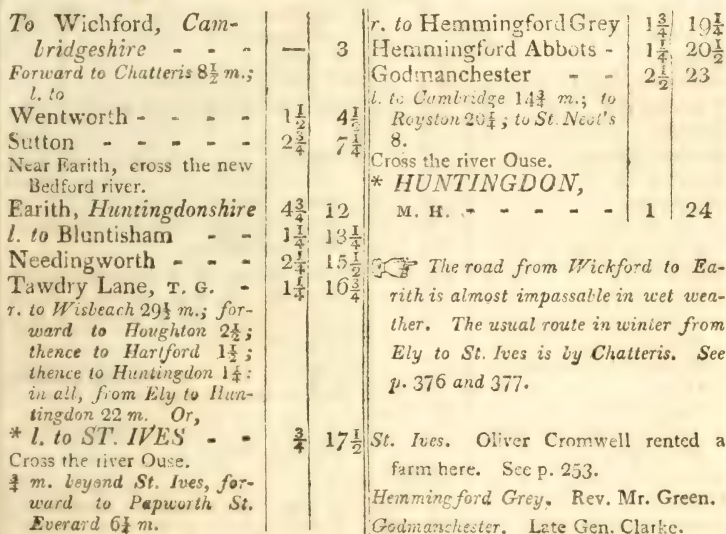 To Wichford, Cam-
bridgeshire - - - — 3
Forward to Chatteris 8½ m.;
l. to
Wentworth - - - - 1½ 4½
Sutton - - - - - 2¾ 7¼
Near Earith, cross the new
Bedford river.
Earith, Huntingdonshire 4¾ 12
l. to Bluntisham - - 1¼ 13¼
Needingworth - - - 2¼ 15½
Tawdry Lane, T. G. - 1¼ 16¾
r. to Wisbeach 29½ m.; for-
ward to Houghton 2½;
thence to Hartford 1½;
thence to Huntingdon 1¼:
in all, from Ely to Hun-
tingdon 22 m. Or,
* l. to ST. IVES - - ¾ 17½
Cross the river Ouse.
¾ m. beyond St. Ives, for-
ward to Papworth St.
Everard 6¼ m.
r. to Hemmingford Grey 1¾ 19¼
Hemmingford Abbots - 1¼ 20½
Godmanchester - - 2½ 23
l. to Cambridge 14¾ m.; to
Royston 20¼; to St. Neot's
8.
Cross the river Ouse.
* HUNTINGDON,
M. H. - - - - - 1 24
☞ The road from Wickford to Ea-
rith is almost impassable in wet wea-
ther. The usual route in winter from
Ely to St. Ives is by Chatteris. See
p. 376 and 377.
St. Ives. Oliver Cromwell rented a
farm here. See p. 253.
Hemmingford Grey. Rev. Mr. Green.
Godmanchester. Late Gen. Clarke.